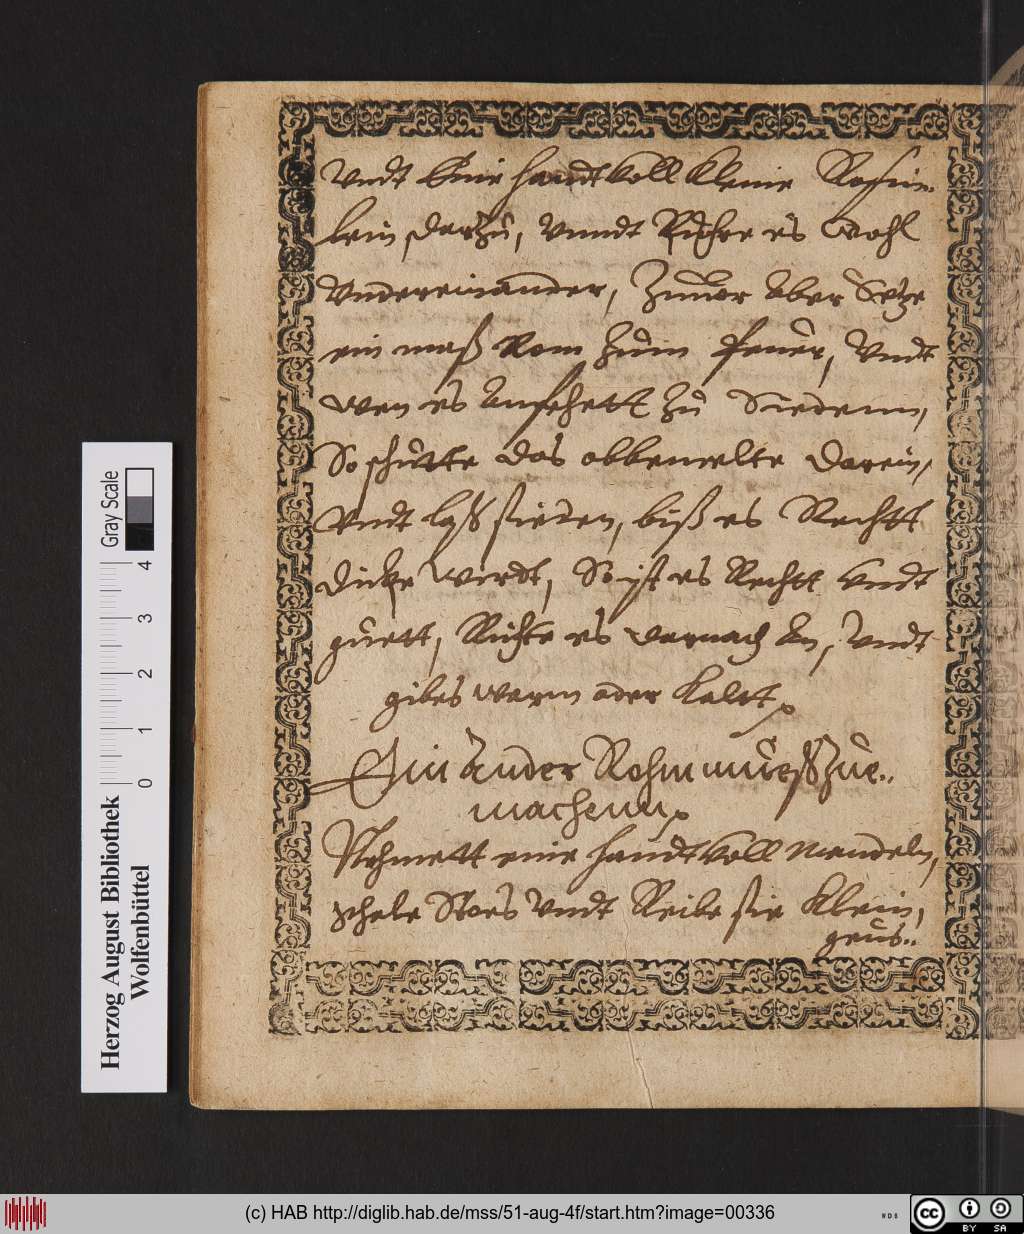 Vndt Eine handt Voll Kleine Rossin-
lein darzŭ, Vnndt Rŭhre es Wohl
Vndereinander, Zŭuor Aber Setze
ein maß Rom Zŭm feŭer, Vndt
wen es Anfehett Zŭ Siedenn,
So schŭtte das obbemelte darein,
Vndt laß sieden, biß es Rechtt
dicke Wirdt, So ist es Rechtt Vndt
gŭett, Richte es darnach An, Vndt
gibes warm oder Kaltt
Ein Ander Rohm mŭeß Zŭe..
machenn
Nehmett eine handt Voll Mandeln,
schele Stoes Vndt Reibe sie Klein,
geŭs..
Gray Scale
0 1 2 3 4
Herzog August Bibliothek
Wolfenbüttel
(c) HAB http://diglib.hab.de/mss/51-aug-4f/start.htm?image=00336
WDB
cc BY SA